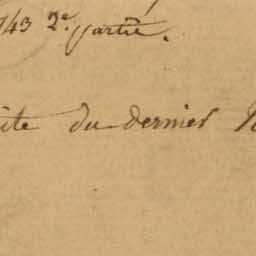 143 2e. partie.
ite du dernier